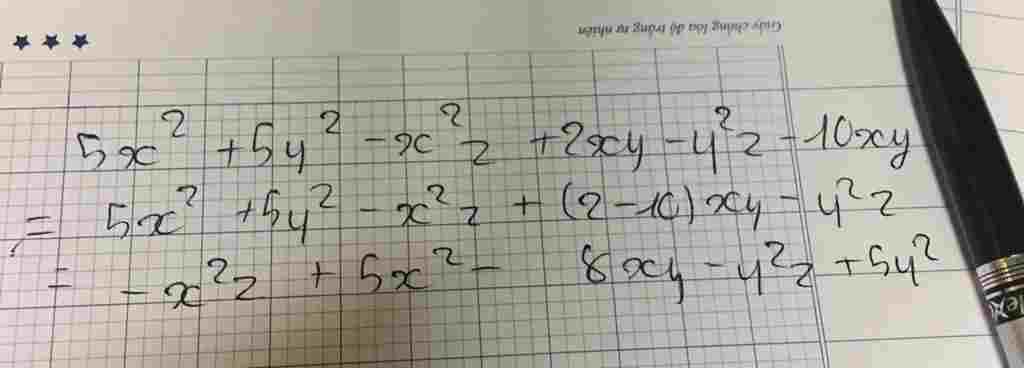 Giấy chống lóa độ trắng tự nhiên
5x² + 5y² - x²z + 2xy - y²z - 10xy
= 5x² + 5y² - x²z + (2-10)xy - y²z
= -x²z + 5x² - 8xy - y²z + 5y²